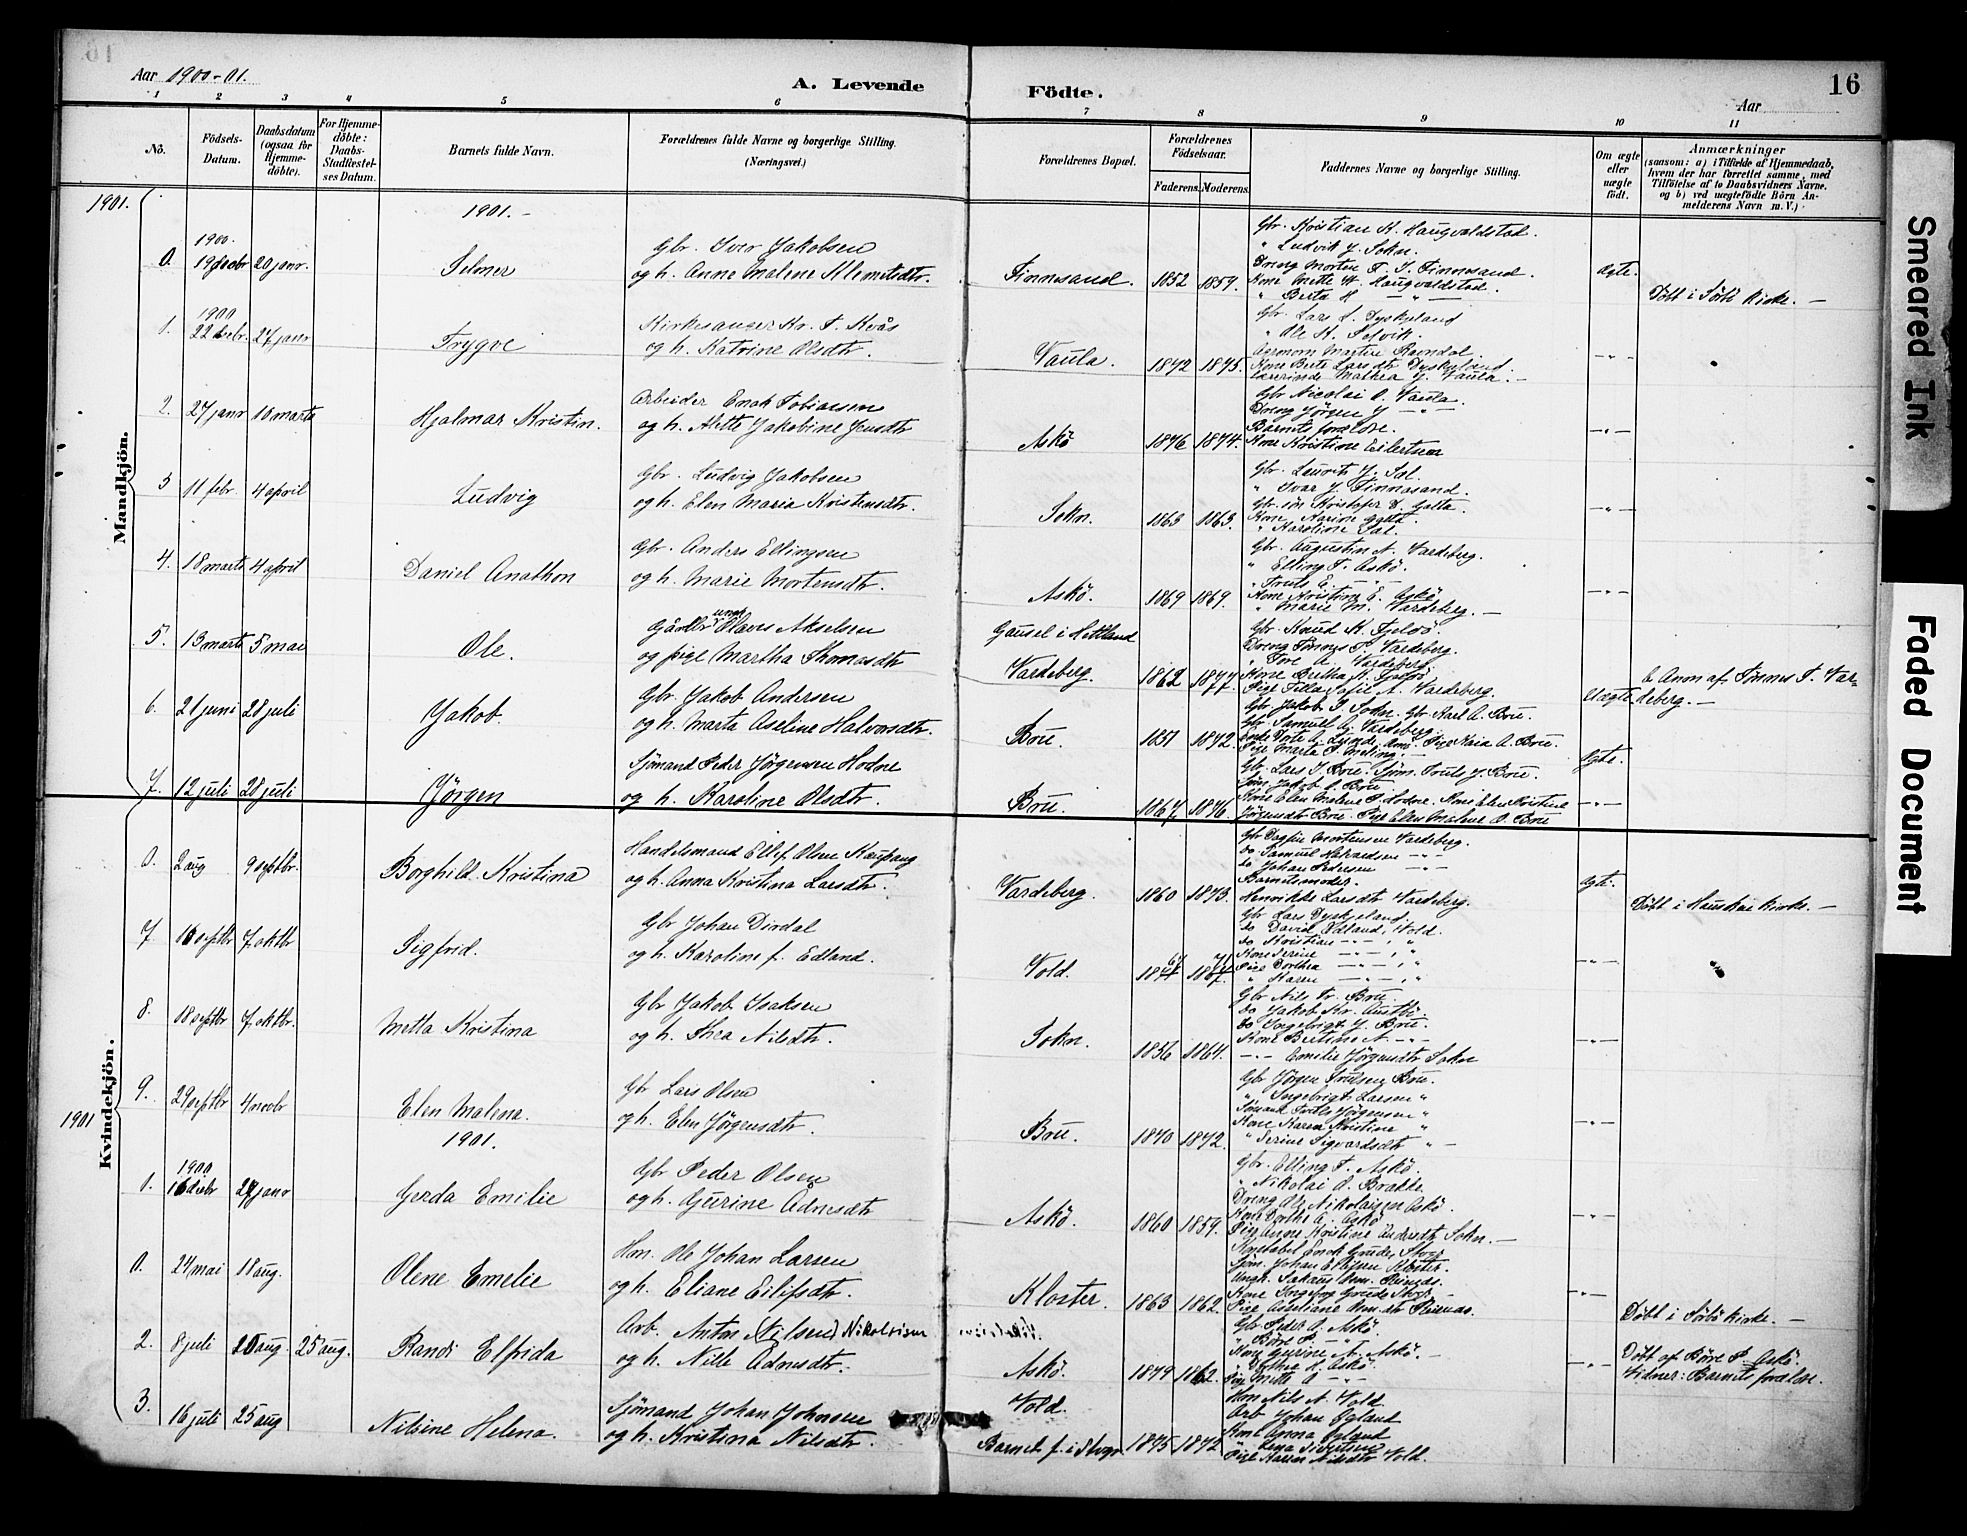 Aar 1900-01.
A. Levende Födte.
Aar
16
1 2 3 4 5 6 7 8 9 10 11
Nö.
Födsels-Datum.
Daabsdatum (ogsaa for Hjemme-döbte).
For Hjemme-döbte: Daabs-Stadfæstel-ses Datum.
Barnets fulde Navn.
Forældrenes fulde Navne og borgerlige Stilling. (Næringsvei.)
Forældrenes Bopæl.
Forældrenes Födselsaar.
Faderens. Moderens.
Faddernes Navne og borgerlige Stilling.
Om ægte eller uægte födt.
Anmærkninger
(saasom: a) i Tilfælde af Hjemmedaab, hvem der har forrettet samme, med Tilföielse af to Daabsvidners Navne. og b) ved uægtefödte Börn An-melderens Navn m. V.)
Mandkjön.
1901. 1901.-
0. 1900. 19 decbr 20 janr. Selmer
Gbr. Iver Jakobsen
og h. Anne Malene Klemetsdtr.
Finnesand. 1852 1859.
Gbr. Kristian H. Haugvaldstad.
" Ludvik J. Sokn.
Dreng Morten F. I. Finnesand.
Kone Mette H. Haugvaldstad.
" Berta H. - " -
Ægte. Döbt i Sörbö Kirke. -
1. 1900 22 decbr. 27 janr Trygve
Kirkesanger Kr. T. Kvås
og h. Katrine Olsdtr.
Vaula. 1872 1875.
Gbr. Lars L. Dyskeland
" Ole K. Selvik.
Agronom Martin Ramdal.
Kone Berte Larsdtr Dyskeland.
Lærerinde Mathea J. Vaula. -
-"-
2. 27 janr 10 marts Hjalmar Kristin.
Arbeider Enok Tobiassen
og h. Alette Jakobine Jensdtr
Askö 1876 1874.
Gbr Nicolai O. Vaula.
Dreng Jörgen J -"-
Barnets forældre.
Kone Kristine Eilertsen
-"-
3 11 febr. 4 april Ludvig
Gbr. Ludvig Jakobsen
og h. Elen Maria Kristensdtr.
Sokn. 1863 1863.
Gbr. Laurits J. Sal.
" Ivar J. Finnesand.
Gbr. sön Kristofer D. Galta.
Kone Karine Galta.
" Karoline Sal.
-"-
4. 18 marts 4 april Daniel Anathon
Gbr. Anders Ellingsen
og h. Marie Mortensdtr.
Askö. 1869 1869.
Gbr. Augustin N. Vardeberg.
" Elling T. Askö.
" Truls E. -"-
Kone Kristine E. Askö
" Marie M. Vardeberg. -
-"-
5. 13 marts 5 mai Ole.
Gårdbr ungk Olaves Akselsen
og pige Martha Thomasdtr
Gausel i Hetland
Vardeberg. 1862 1877
Gbr. Knud K. Fjelö.
Dreng Tönnes T. Vardeberg.
" Tore A. Vardeberg
Kone Britha K. Fjelö.
Pige Tilla Sofie A. Vardeberg.
Uægte. b Anm af Tönnes T. Vardeberg. -
6. 21 juni 28 juli Jakob.
Gbr. Jakob Andersen
og h. Marta Aseline Halvorsdtr.
Bru. 1851 1872.
Gbr. Jakob I. Sokn. Gbr. Karl A. Bru.
Gbr. Samuel A. Vardeberg.
Pige Maria A. Bru.
Pige Marta P. Meling.
Ægte.
7. 12 juli 28 juli Jörgen
Sjömand Peder Jörgensen Hodne
og h. Karoline Olsdtr.
Bru. 1867 1876.
Gbr. Lars I. Bru. Sjöm. Truls J. Bru
Sjöm. Jakob O. Bru.
Kone Elen Malene P. Hodne. Kone Elen Kristine
Jörgensdtr Bru. Pige Elen Malene O. Bru
-"-
Kvindekjön.
0. 2 aug 9 septbr. Borghild Kristina
Handelsmand Ellef Olsen Kaupang
og h. Anna Kristina Larsdtr.
Vardeberg. 1860 1873.
Gbr Dagfin Mortensen Vardeberg.
do Samuel Halvardsen -"-
do Johan Pedersen -"-
Barnets moder.
Henrikke Larsdtr Vardeberg.
Ægte. Döbt i Hauskei Kirke. -
7. 16 septbr 7 oktbr Sigfrid.
Gbr Johan Dirdal
og h. Karoline f. Edland.
Vold.
Gbr Lars Dyskeland.
do David Edland, Vold.
do Kristian -"-, "
Kone Serine -"-, "
Pige Dorthea -"-, "
" Karen -"-, "
-"-
8. 18 septbr 7 oktbr. Metta Kristina
Gbr Jakob Isaksen
og h. Thea Nilsdtr.
Sokn. 1856 1864.
Gbr Nils Tr. Bru.
do Jakob Kr. Austbö
do Ingebrigt J. Bru.
Kone Bertine N. -"-
-"- Emilie Jörgensdtr Sokn
-"-
9. 29 septbr 4 novbr Elen Malena.
Gbr Lars Olsen
og h. Elen Jörgensdtr.
Bru. 1870 1872.
Gbr Jörgen Trulsen Bru.
" Ingebrigt Larsen "
Sömand Truls Jörgensen "
Kone Karen Kristine "
" Serine Sigvardsdtr " -
-"-
1901 1901.
1. 1900 16 decbr 27 janr Gerda Emilie
Gbr Peder Olsen
og h. Gurine Adnesdtr
Askö. 1860 1859.
Gbr. Elling T. Askö.
" Nikolai O. Brække
Dreng Ole Nikolaisen Askö.
Kone Dorthe A. Askö
Pige Anne Kristine Andersdtr Sokn. -
-"-
0. 24 mai 18 aug. Olene Emelie
Hm. Ole Johan Larsen
og h. Eliane Eilifsdtr.
Kloster. 1863 1862.
Konstabel Enok Grude, Stvgr
Sjöm. Johan Eilifsen Kloster.
Kone Ingeborg Grude Stvgr -
-"- Döbt i Sörbö Kirke. -
2. 8 juli 20 aug. 25 aug. Randi Elfrida
Arb. Anton (Nilsen) Nikolaisen
og h. Nille Adnesdtr.
Askö. 1879 1862.
Gbr Peder O. Askö.
" Böre P. -"-
Kone Gurine A. Askö. -
" Dorthe A. Askö.
Pige Mette O -"-
-"- Döbt af Böre P. Askö.
Vidner: Barnets forældre.
3. 16 juli 25 aug Nilsine Helena.
Sjömand Johan Johnsen
og h. Kristina Nilsdtr.
Vold.
Barnet f. i Stvgr 1875 1872
Hm Nils N. Vold
Arb Johan Ogland
Kone Anna Ogland
" Lena Sivertsen
Pige Karen Nilsdtr Vold.
Smeared Ink
Faded Document